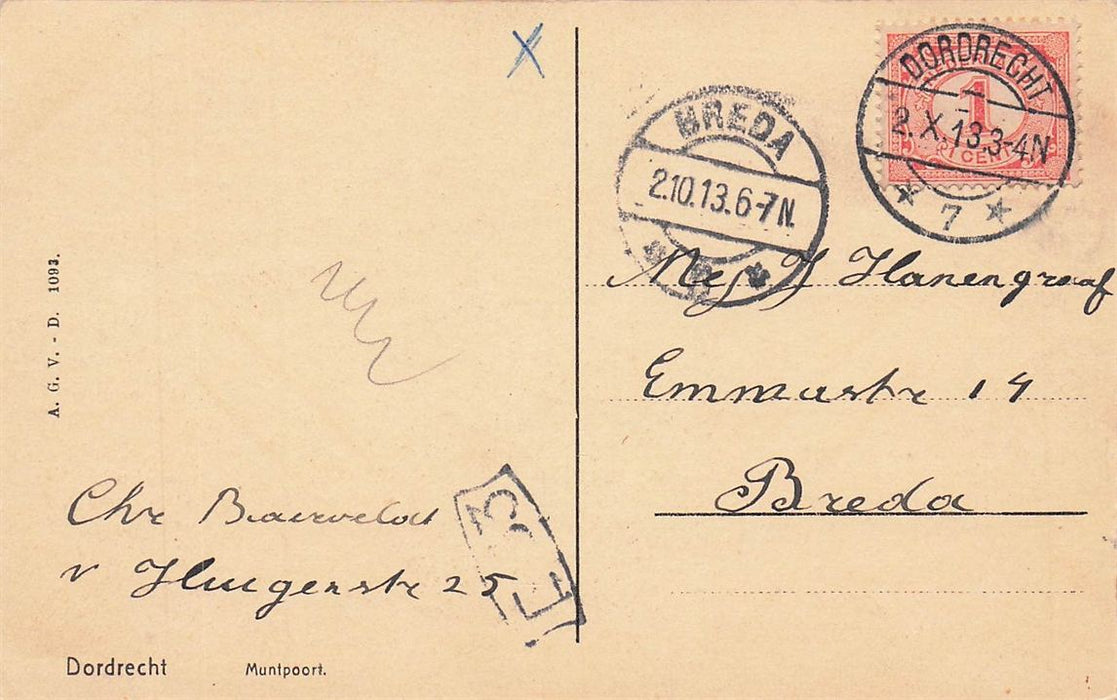 DORDRECHT
2.X.13.3-4N
7
1
CENT
BREDA
2.10.13.6-7N.
Mej J Hanengraaf
Emmastr 14
Breda
A. G. V. - D. 1093.
Chr
v 25
E 33
Dordrecht Muntpoort.